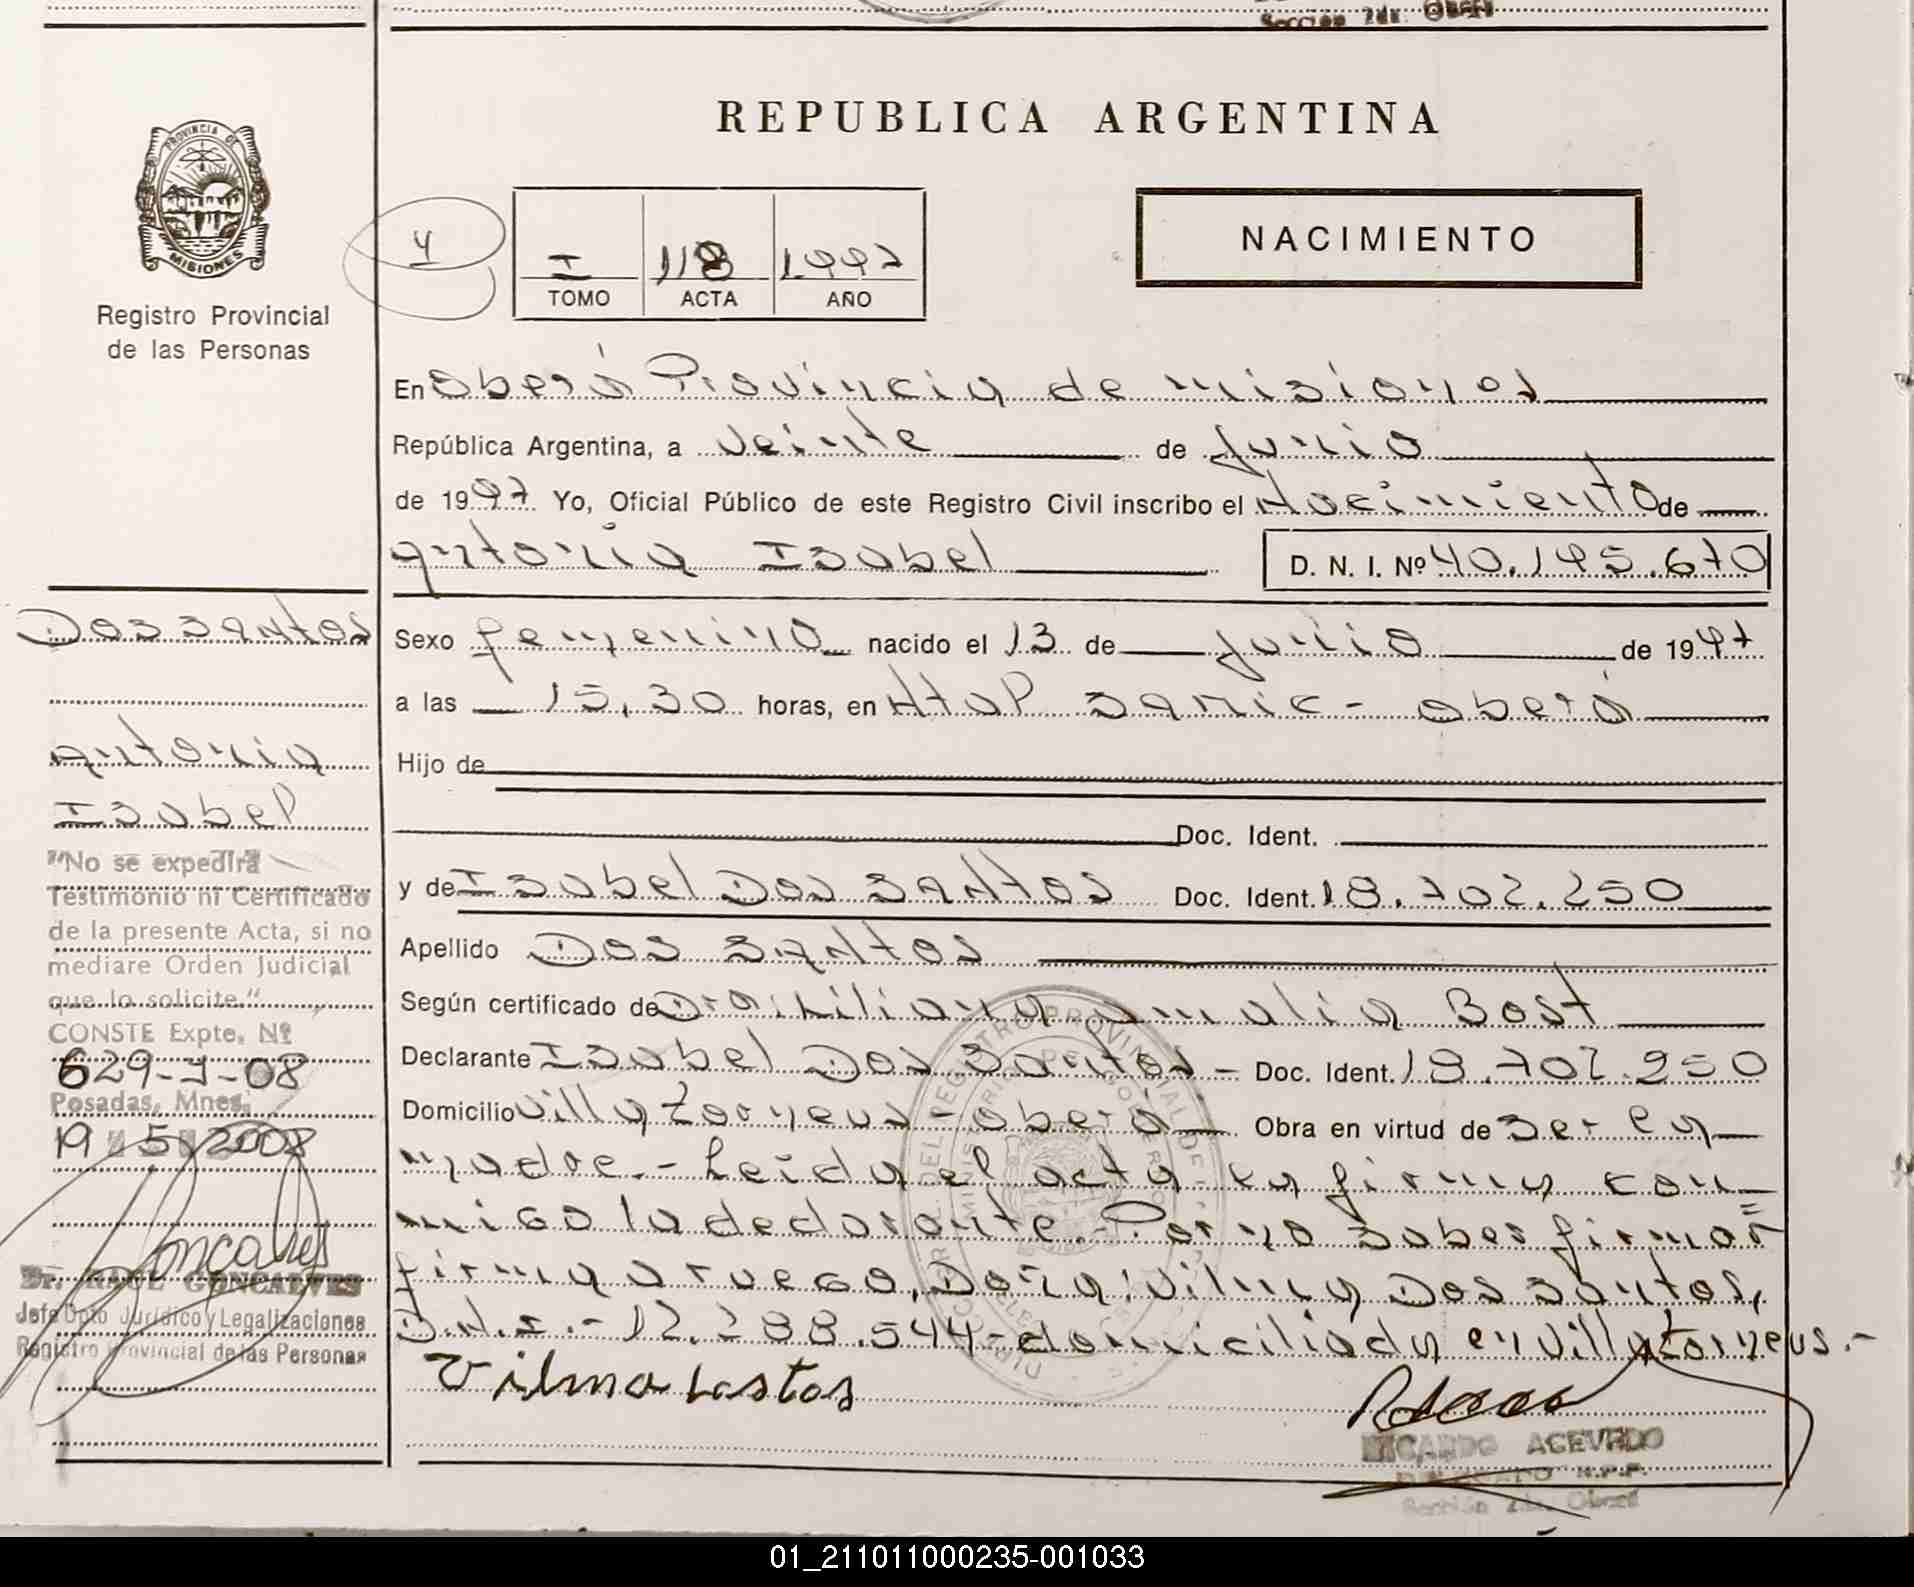 Sección 2da. Oberá
REPUBLICA ARGENTINA
PROVINCIA DE
MISIONES
Registro Provincial
de las Personas
4
I 118 1997
TOMO ACTA AÑO
NACIMIENTO
En Oberá Provincia de misiones
República Argentina, a veinte de Junio
de 1997. Yo, Oficial Público de este Registro Civil inscribo el Nacimiento de
Antonia Isabel D. N. I. Nº 40.195.670
Sexo femenino nacido el 13 de Junio de 1997
a las 15,30 horas, en Htal Samic - Oberá
Hijo de
Doc. Ident.
y de Isabel Dos Santos Doc. Ident. 18.702.250
Apellido Dos Santos
Según certificado de Dra. Liliana Amalia Bost
Declarante Isabel Dos Santos - Doc. Ident. 18.702.250
Domicilio Villa Torneus - Oberá Obra en virtud de ser la
madre.- Leida el acta la firma con=
migo la declarante.- Por no saber firmar
firma a ruego, Doña: Vilma Dos Santos,
D.N.I.- 12.288.544- domiciliada en Villa Torneus.-
Vilma Lostos
RICARDO ACEVEDO
DELEGADO R.P.P.
Sección 2da. Oberá
Dos Santos
Antonia
Isabel
"No se expedirá
Testimonio ni Certificado
de la presente Acta, si no
mediare Orden Judicial
que lo solicite."
CONSTE Expte. Nº
629-J-08
Posadas, Mnes.
19 5 2008
Goncalves
Dr. RAUL GONCALVES
Jefe Dpto Jurídico y Legalizaciones
Registro Provincial de las Personas
01_211011000235-001033